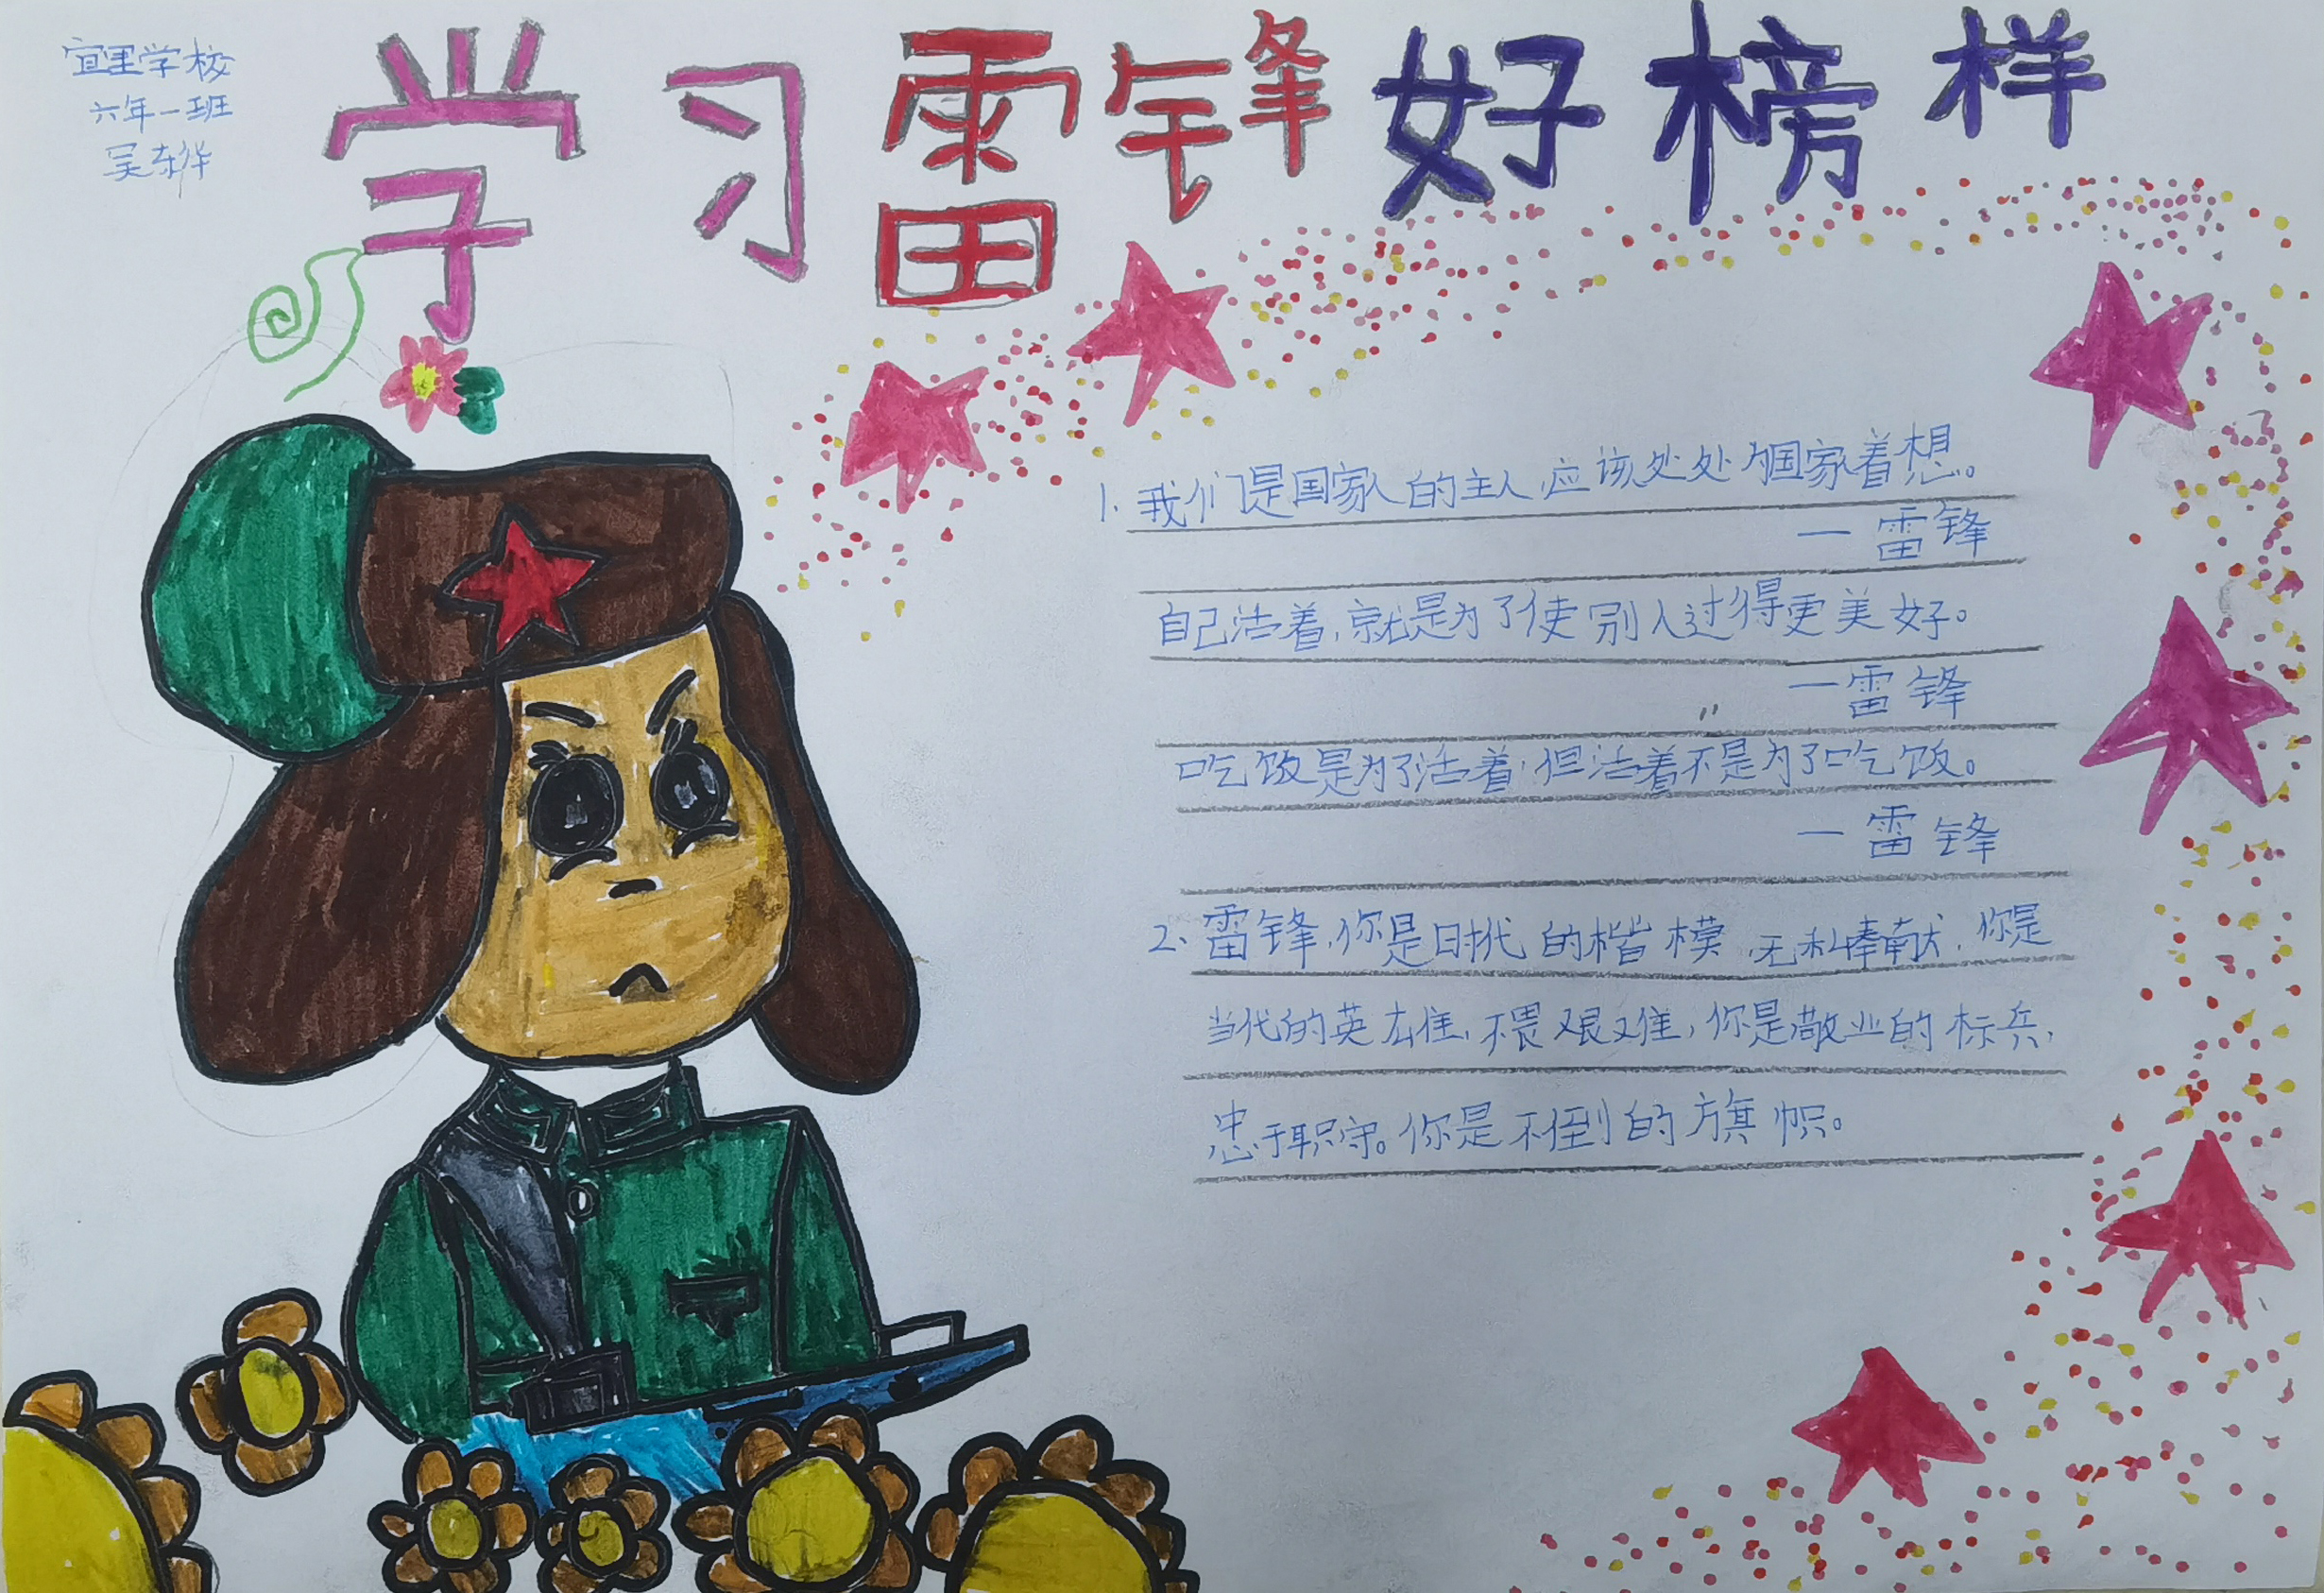 宜里学校
六年一班
吴东华
学习雷锋好榜样
1.我们是国家人的主人,应该处处为国家着想。
一雷锋
自己活着,就是为了使别人过得更美好。
一雷锋
吃饭是为了活着,但活着不是为了吃饭。
一雷锋
2、雷锋,你是时代的楷模,无私奉献,你是
当代的英雄,不畏艰难,你是敬业的标兵,
忠于职守。你是不倒的旗帜。